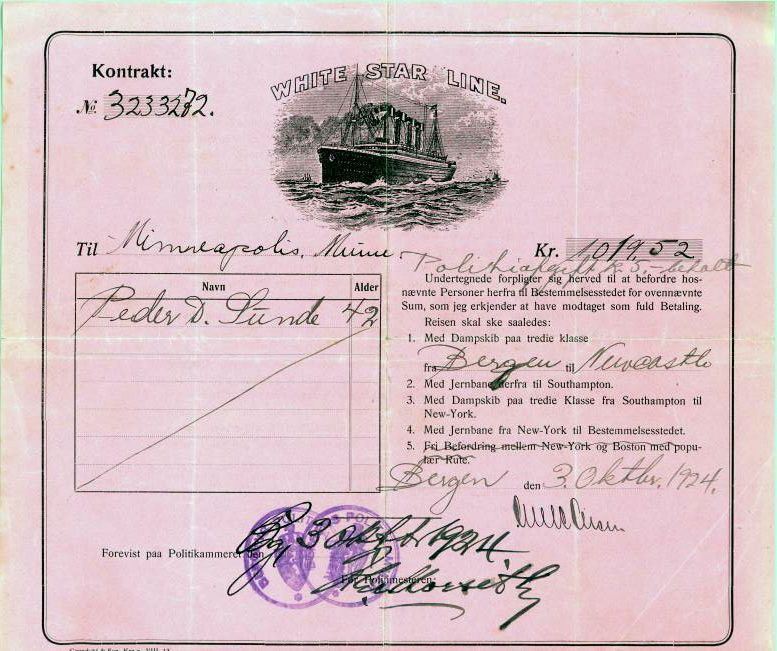 Kontrakt:
No 3233272.
WHITE STAR LINE.
Til Minneapolis, Minn.
Kr. 1019.52
Politiafgift k. 3.- betalt
Navn Alder
Peder D. Sunde 42
Undertegnede forpligter sig herved til at befordre hos-
nævnte Personer herfra til Bestemmelsesstedet for ovennævnte
Sum, som jeg erkjender at have modtaget som fuld Betaling.
Reisen skal ske saaledes:
1. Med Dampskib paa tredie klasse
fra Bergen til Newcastle
2. Med Jernbane derfra til Southampton.
3. Med Dampskib paa tredie Klasse fra Southampton til
New-York.
4. Med Jernbane fra New-York til Bestemmelsesstedet.
5. Fri Befordring mellem New-York og Boston med popu-
lær Rute.
Bergen den 3. Oktbr. 1924.
Forevist paa Politikammeret den 3 1924.
For Politimesteren: